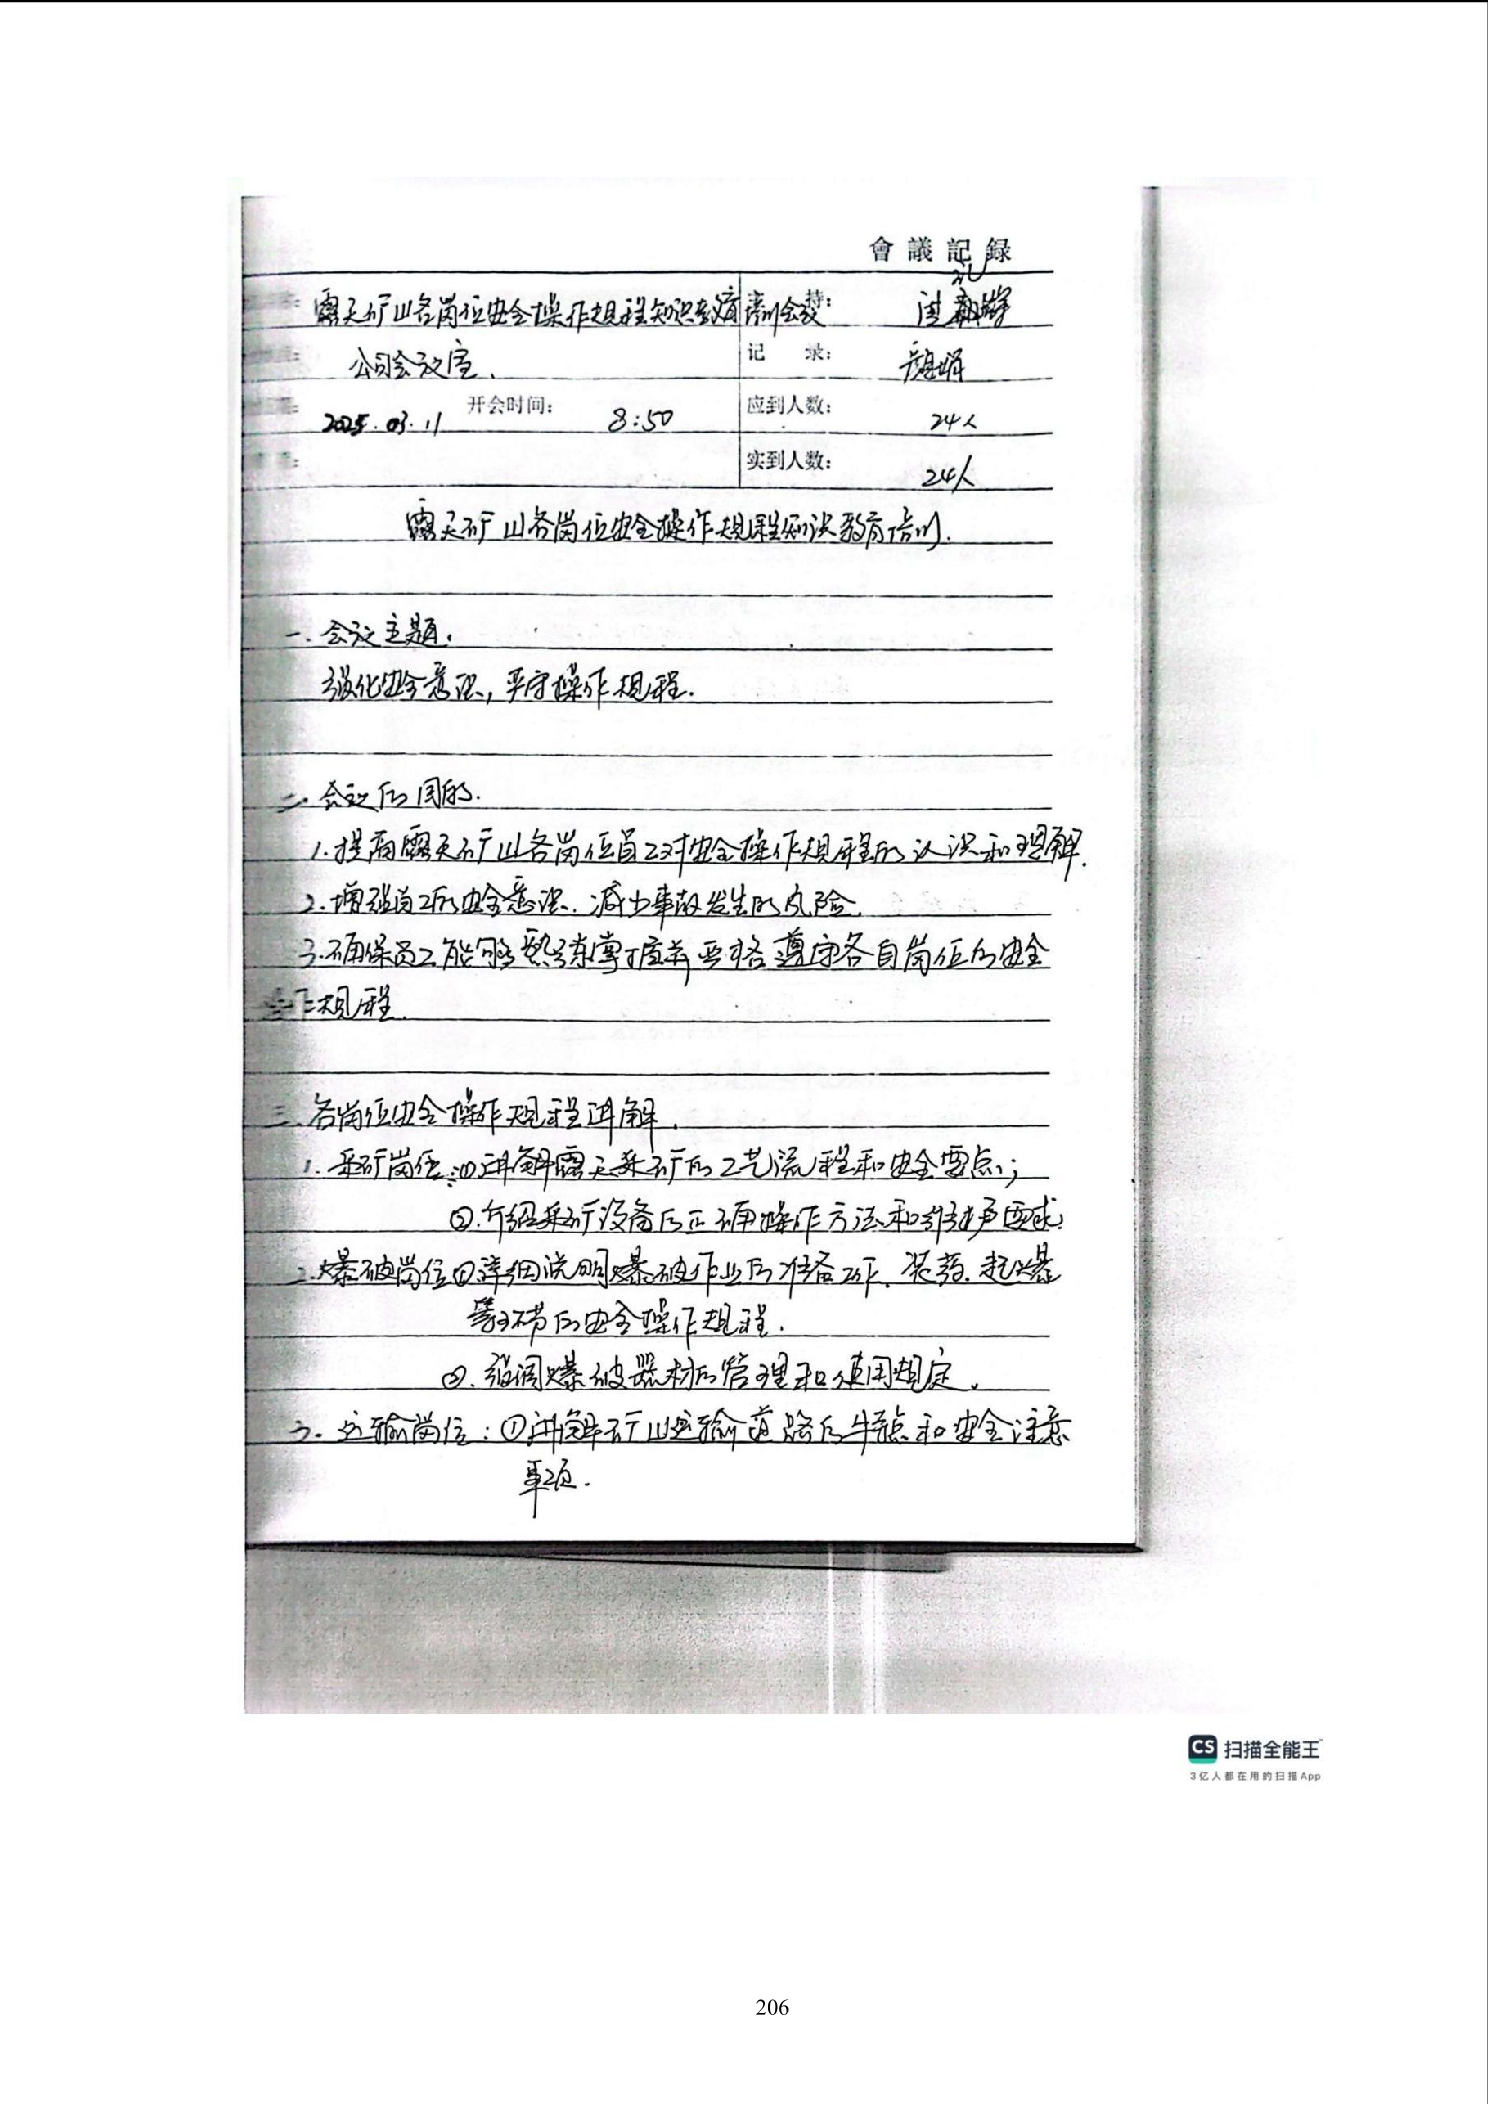 會議記録
露天矿山各岗位安全操作规程知识教育培训会议 持:
公司会议室. 记 录:
2025.03.11 开会时间: 8:50 应到人数: 24人
实到人数: 24人
露天矿山各岗位安全操作规程知识教育培训.
一.会议主题.
强化安全意识,严守操作规程.
二.会议的目的.
1.提高露天矿山各岗位员工对安全操作规程的认识和理解.
2.增强员工的安全意识.减少事故发生的风险.
3.确保员工能够熟练掌握并严格遵守各自岗位的安全
操作规程.
三.各岗位安全操作规程讲解.
1.采矿岗位:①讲解露天采矿的工艺流程和安全要点;
②.介绍采矿设备的正确操作方法和维护要求;
2.爆破岗位①详细说明爆破作业的准备工作.装药.起爆
等环节的安全操作规程.
②.强调爆破器材的管理和使用规定.
3.运输岗位:①讲解矿山运输道路的特点和安全注意
事项.
CS 扫描全能王
3亿人都在用的扫描App
206